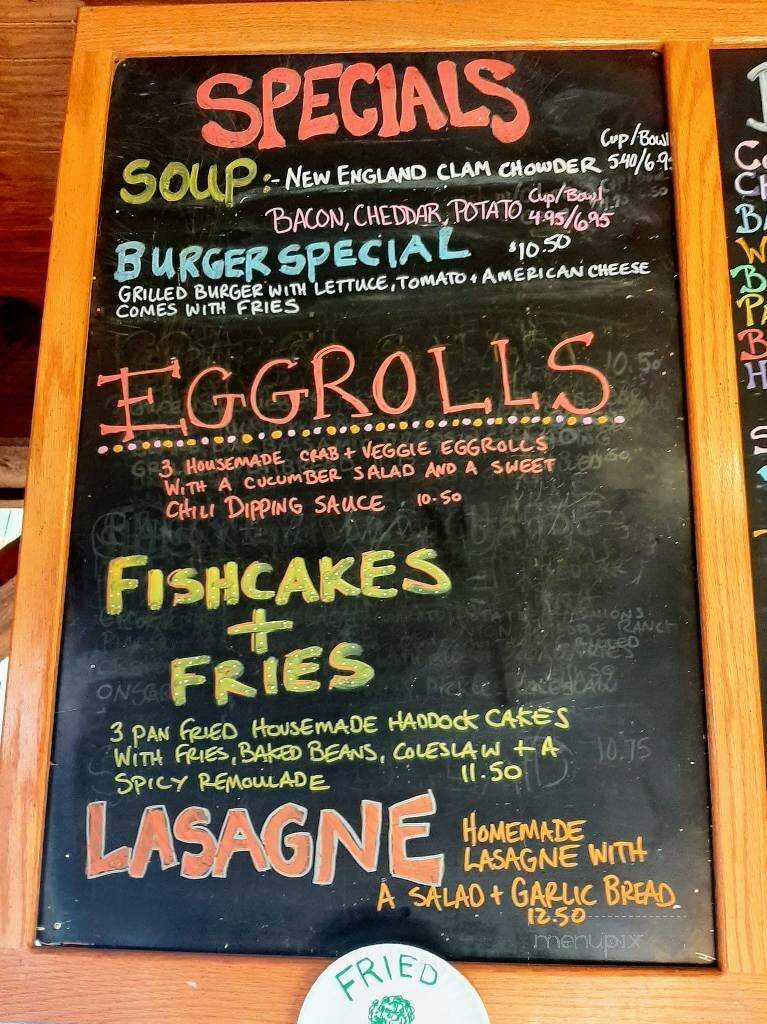 SPECIALS
Cup/Bowl
SOUP :- NEW ENGLAND CLAM CHOWDER 5.40/6.9
Cup/Bowl
BACON, CHEDDAR, POTATO 4.95/6.95
BURGER SPECIAL $10.50
GRILLED BURGER WITH LETTUCE, TOMATO + AMERICAN CHEESE
COMES WITH FRIES
EGGROLLS
3 HOUSEMADE CRAB + VEGGIE EGGROLLS
WITH A CUCUMBER SALAD AND A SWEET
CHILI DIPPING SAUCE 10.50
FISHCAKES
+
FRIES
3 PAN FRIED HOUSEMADE HADDOCK CAKES
WITH FRIES, BAKED BEANS, COLESLAW + A
SPICY REMOULADE 11.50
LASAGNE
HOMEMADE
LASAGNE WITH
A SALAD + GARLIC BREAD
12.50
menupix
FRIED